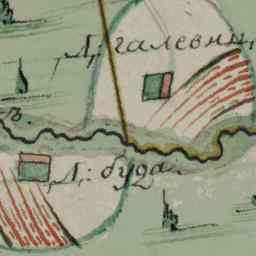 Д: галевни
ъ.
Д: буда.